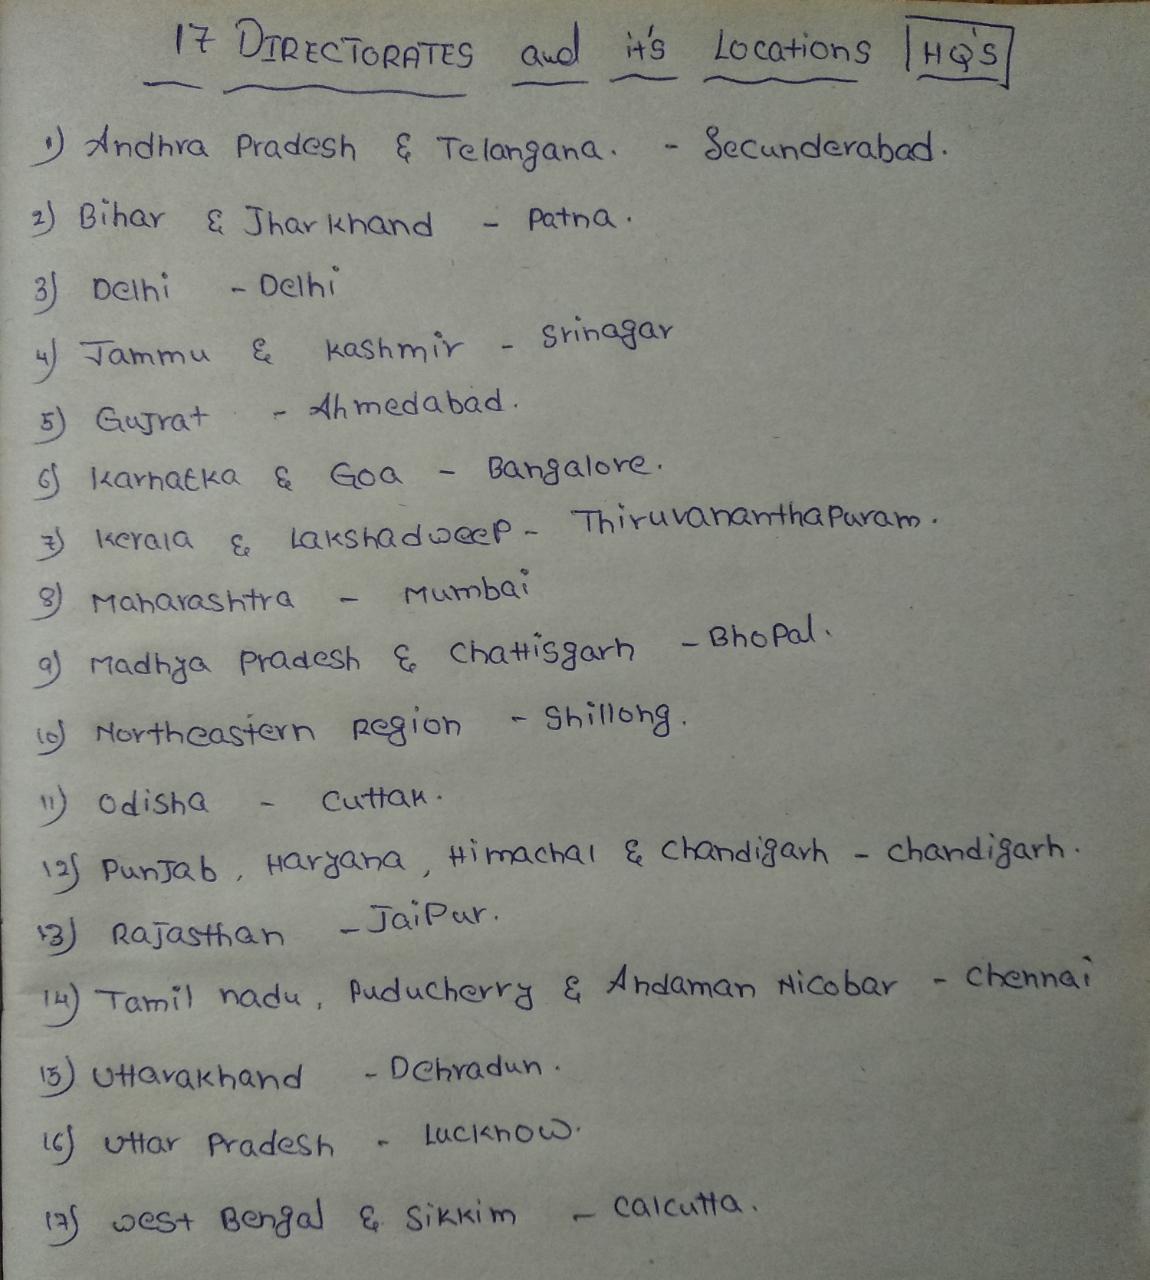 17 DIRECTORATES and it's Locations [HQ'S]
1) Andhra Pradesh & Telangana. - Secunderabad.
2) Bihar & Jharkhand - Patna.
3) Delhi - Delhi
4) Jammu & Kashmir - Srinagar
5) Gujrat - Ahmedabad.
6) Karnatka & Goa - Bangalore.
7) Kerala & Lakshadweep - Thiruvananthapuram.
8) Maharashtra - Mumbai
9) Madhya Pradesh & Chattisgarh - Bhopal.
10) Northeastern Region - Shillong.
11) Odisha - Cuttak.
12) Punjab, Haryana, Himachal & Chandigarh - Chandigarh.
13) Rajasthan - Jaipur.
14) Tamil nadu, Puducherry & Andaman Nicobar - Chennai
15) Uttarakhand - Dehradun.
16) Uttar Pradesh - Lucknow.
17) West Bengal & Sikkim - Calcutta.